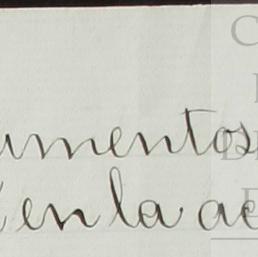 umentos
en la ac